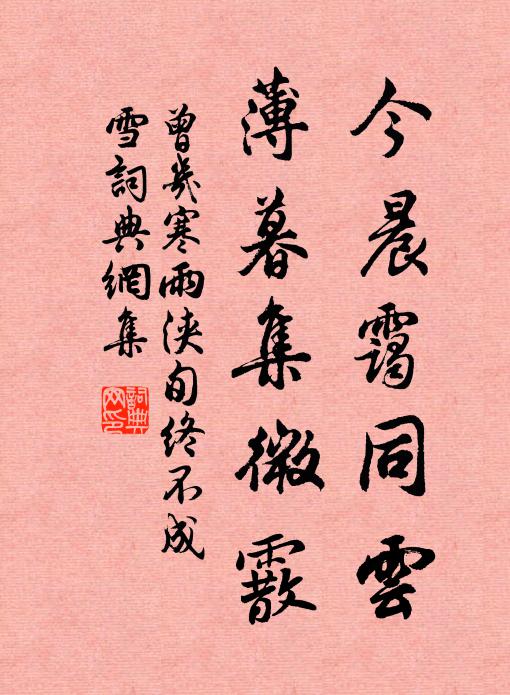 今晨靄同雲
薄暮集微霰
曾幾寒雨浹旬終不成
雪詞典網集
詞典
网印